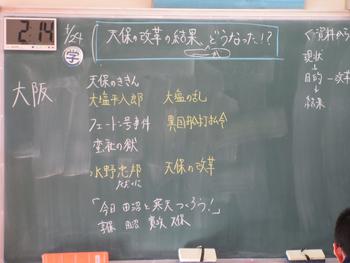 2:14
1/24
学
天保の改革の結果、どうなった!?
資料から
現状
↓
目的 → 改革
↓
結果
大阪
天保のききん
大塩平八郎 大塩の乱
フェートン号事件 異国船打払令
蛮社の獄
水野忠邦 天保の改革
ただくに
「今日 田沼と寒天 つくろう!」
享保 田沼 寛政 天保